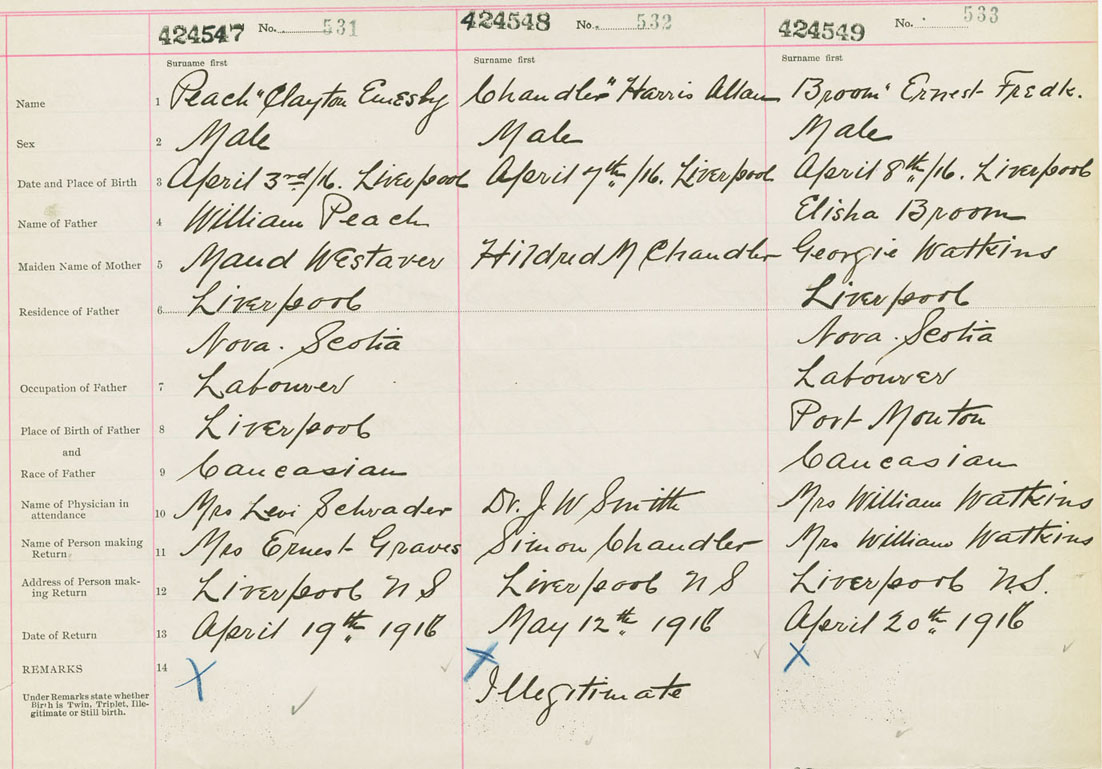 424547 No. 531 424548 No. 532 424549 No. 533
Surname first Surname first Surname first
Name 1 Peach "Clayton Emesby Chandler" Harris Allan Broom" Ernest Fredk.
Sex 2 Male Male Male
Date and Place of Birth 3 April 3rd/16. Liverpool April 7th/16. Liverpool April 8th/16. Liverpool
Name of Father 4 William Peach Elisha Broom
Maiden Name of Mother 5 Maud Westaver Hildred M Chandler Georgie Watkins
Residence of Father 6 Liverpool Liverpool
Nova. Scotia Nova. Scotia
Occupation of Father 7 Labourer Labourer
Place of Birth of Father 8 Liverpool Port Mouton
and
Race of Father 9 Caucasian Caucasian
Name of Physician in
attendance 10 Mrs Levi Schrader Dr. J W Smith Mrs William Watkins
Name of Person making
Return 11 Mrs Ernest Graves Simon Chandler Mrs William Watkins
Address of Person mak-
ing Return 12 Liverpool N S Liverpool N S Liverpool N.S.
Date of Return 13 April 19th 1916 May 12th 1916 April 20th 1916
REMARKS 14 X X X
Illegitimate
Under Remarks state whether
Birth is Twin, Triplet, Ille-
gitimate or Still birth.